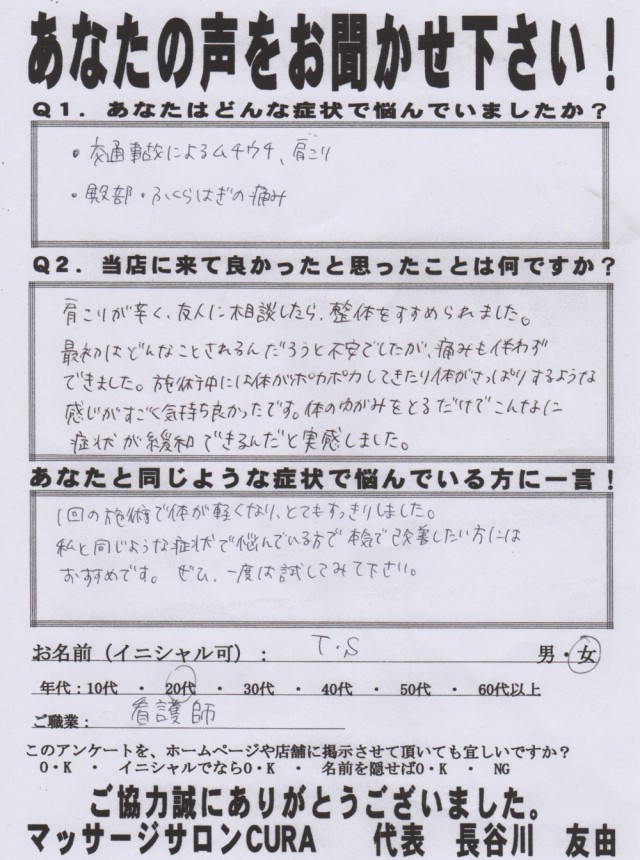 あなたの声をお聞かせ下さい！
Q1．あなたはどんな症状で悩んでいましたか？
・交通事故によるムチウチ、肩こり
・臀部・ふくらはぎの痛み
Q2．当店に来て良かったと思ったことは何ですか？
肩こりが辛く、友人に相談したら、整体をすすめられました。
最初はどんなことされるんだろうと不安でしたが、痛みも伴わず
できました。施術中には体がポカポカしてきたり体がさっぱりするような
感じがすごく気持ち良かったです。体のゆがみをとるだけでこんなに
症状が緩和できるんだと実感しました。
あなたと同じような症状で悩んでいる方に一言！
1回の施術で体が軽くなり、とてもすっきりしました。
私と同じような症状で悩んでいる方で本気で改善したい方には
おすすめです。ぜひ、一度は試してみて下さい。
お名前（イニシャル可）： T・S 男・女
年代：10代 ・ 20代 ・ 30代 ・ 40代 ・ 50代 ・ 60代以上
ご職業： 看護師
このアンケートを、ホームページや店舗に掲示させて頂いても宜しいですか？
O・K ・ イニシャルでならO・K ・ 名前を隠せばO・K ・ NG
ご協力誠にありがとうございました。
マッサージサロンCURA 代表 長谷川 友由